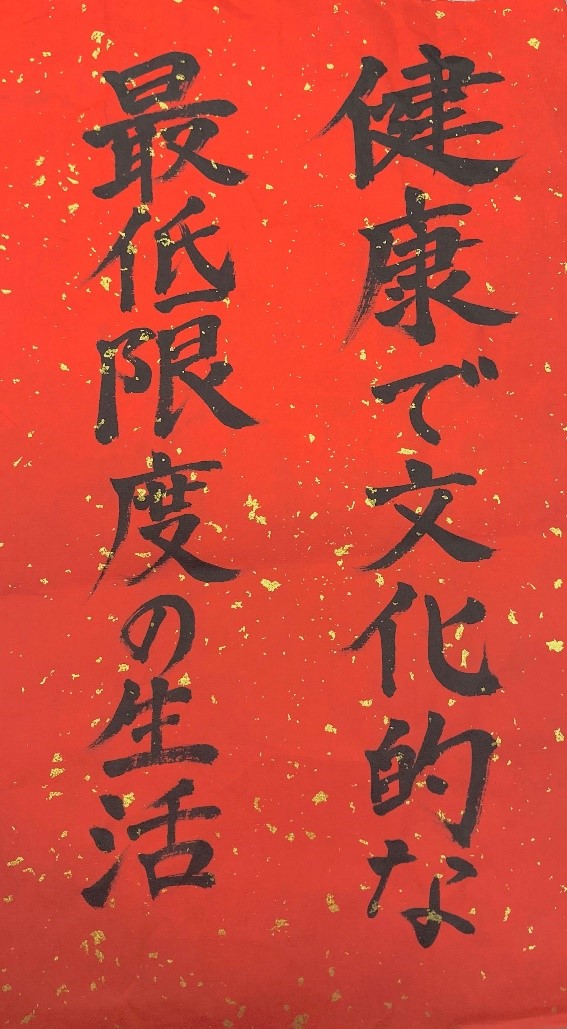 健康で文化的な
最低限度の生活